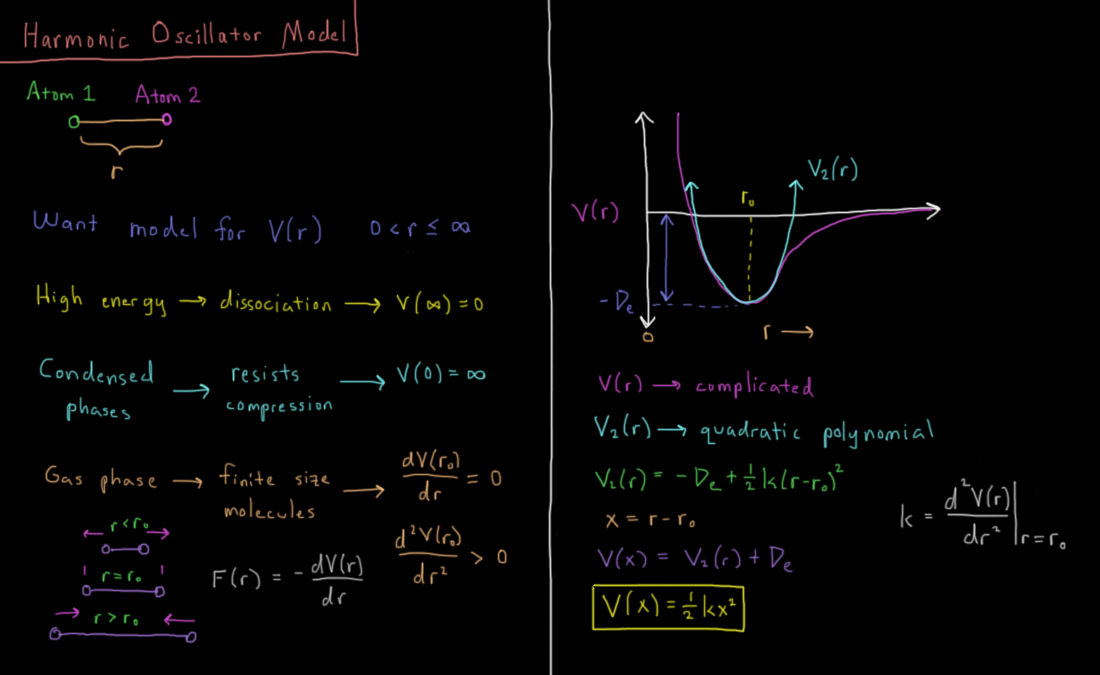 Harmonic Oscillator Model
Atom 1 Atom 2
r
Want model for V(r) 0 < r ≤ ∞
High energy → dissociation → V(∞) = 0
Condensed phases → resists compression → V(0) = ∞
Gas phase → finite size molecules → dV(r₀)/dr = 0
d²V(r₀)/dr² > 0
← r < r₀ →
r = r₀
→ r > r₀ ←
F(r) = - dV(r)/dr
V(r)
r₀
V₂(r)
-Dₑ
0
r →
V(r) → complicated
V₂(r) → quadratic polynomial
V₂(r) = -Dₑ + ½ k(r-r₀)²
k = d²V(r)/dr² |r=r₀
x = r - r₀
V(x) = V₂(r) + Dₑ
V(x) = ½ kx²